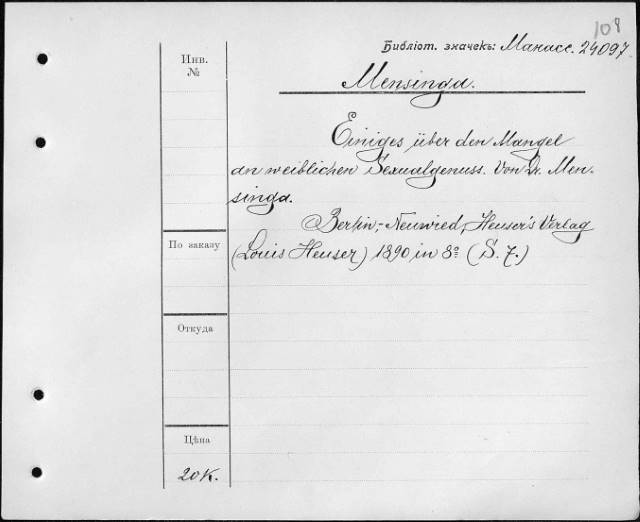 108
Библіот. значекъ: Манасс. 24097.
Инв.
№
Mensinga.
Einiges über den Mangel
an weiblichen Sexualgenuss. Von Dr. Men-
singa.
Berlin-Neuwied, Heuser's Verlag
По заказу
(Louis Heuser) 1890 in 8º (S. 7.)
Откуда
Цѣна
20 к.